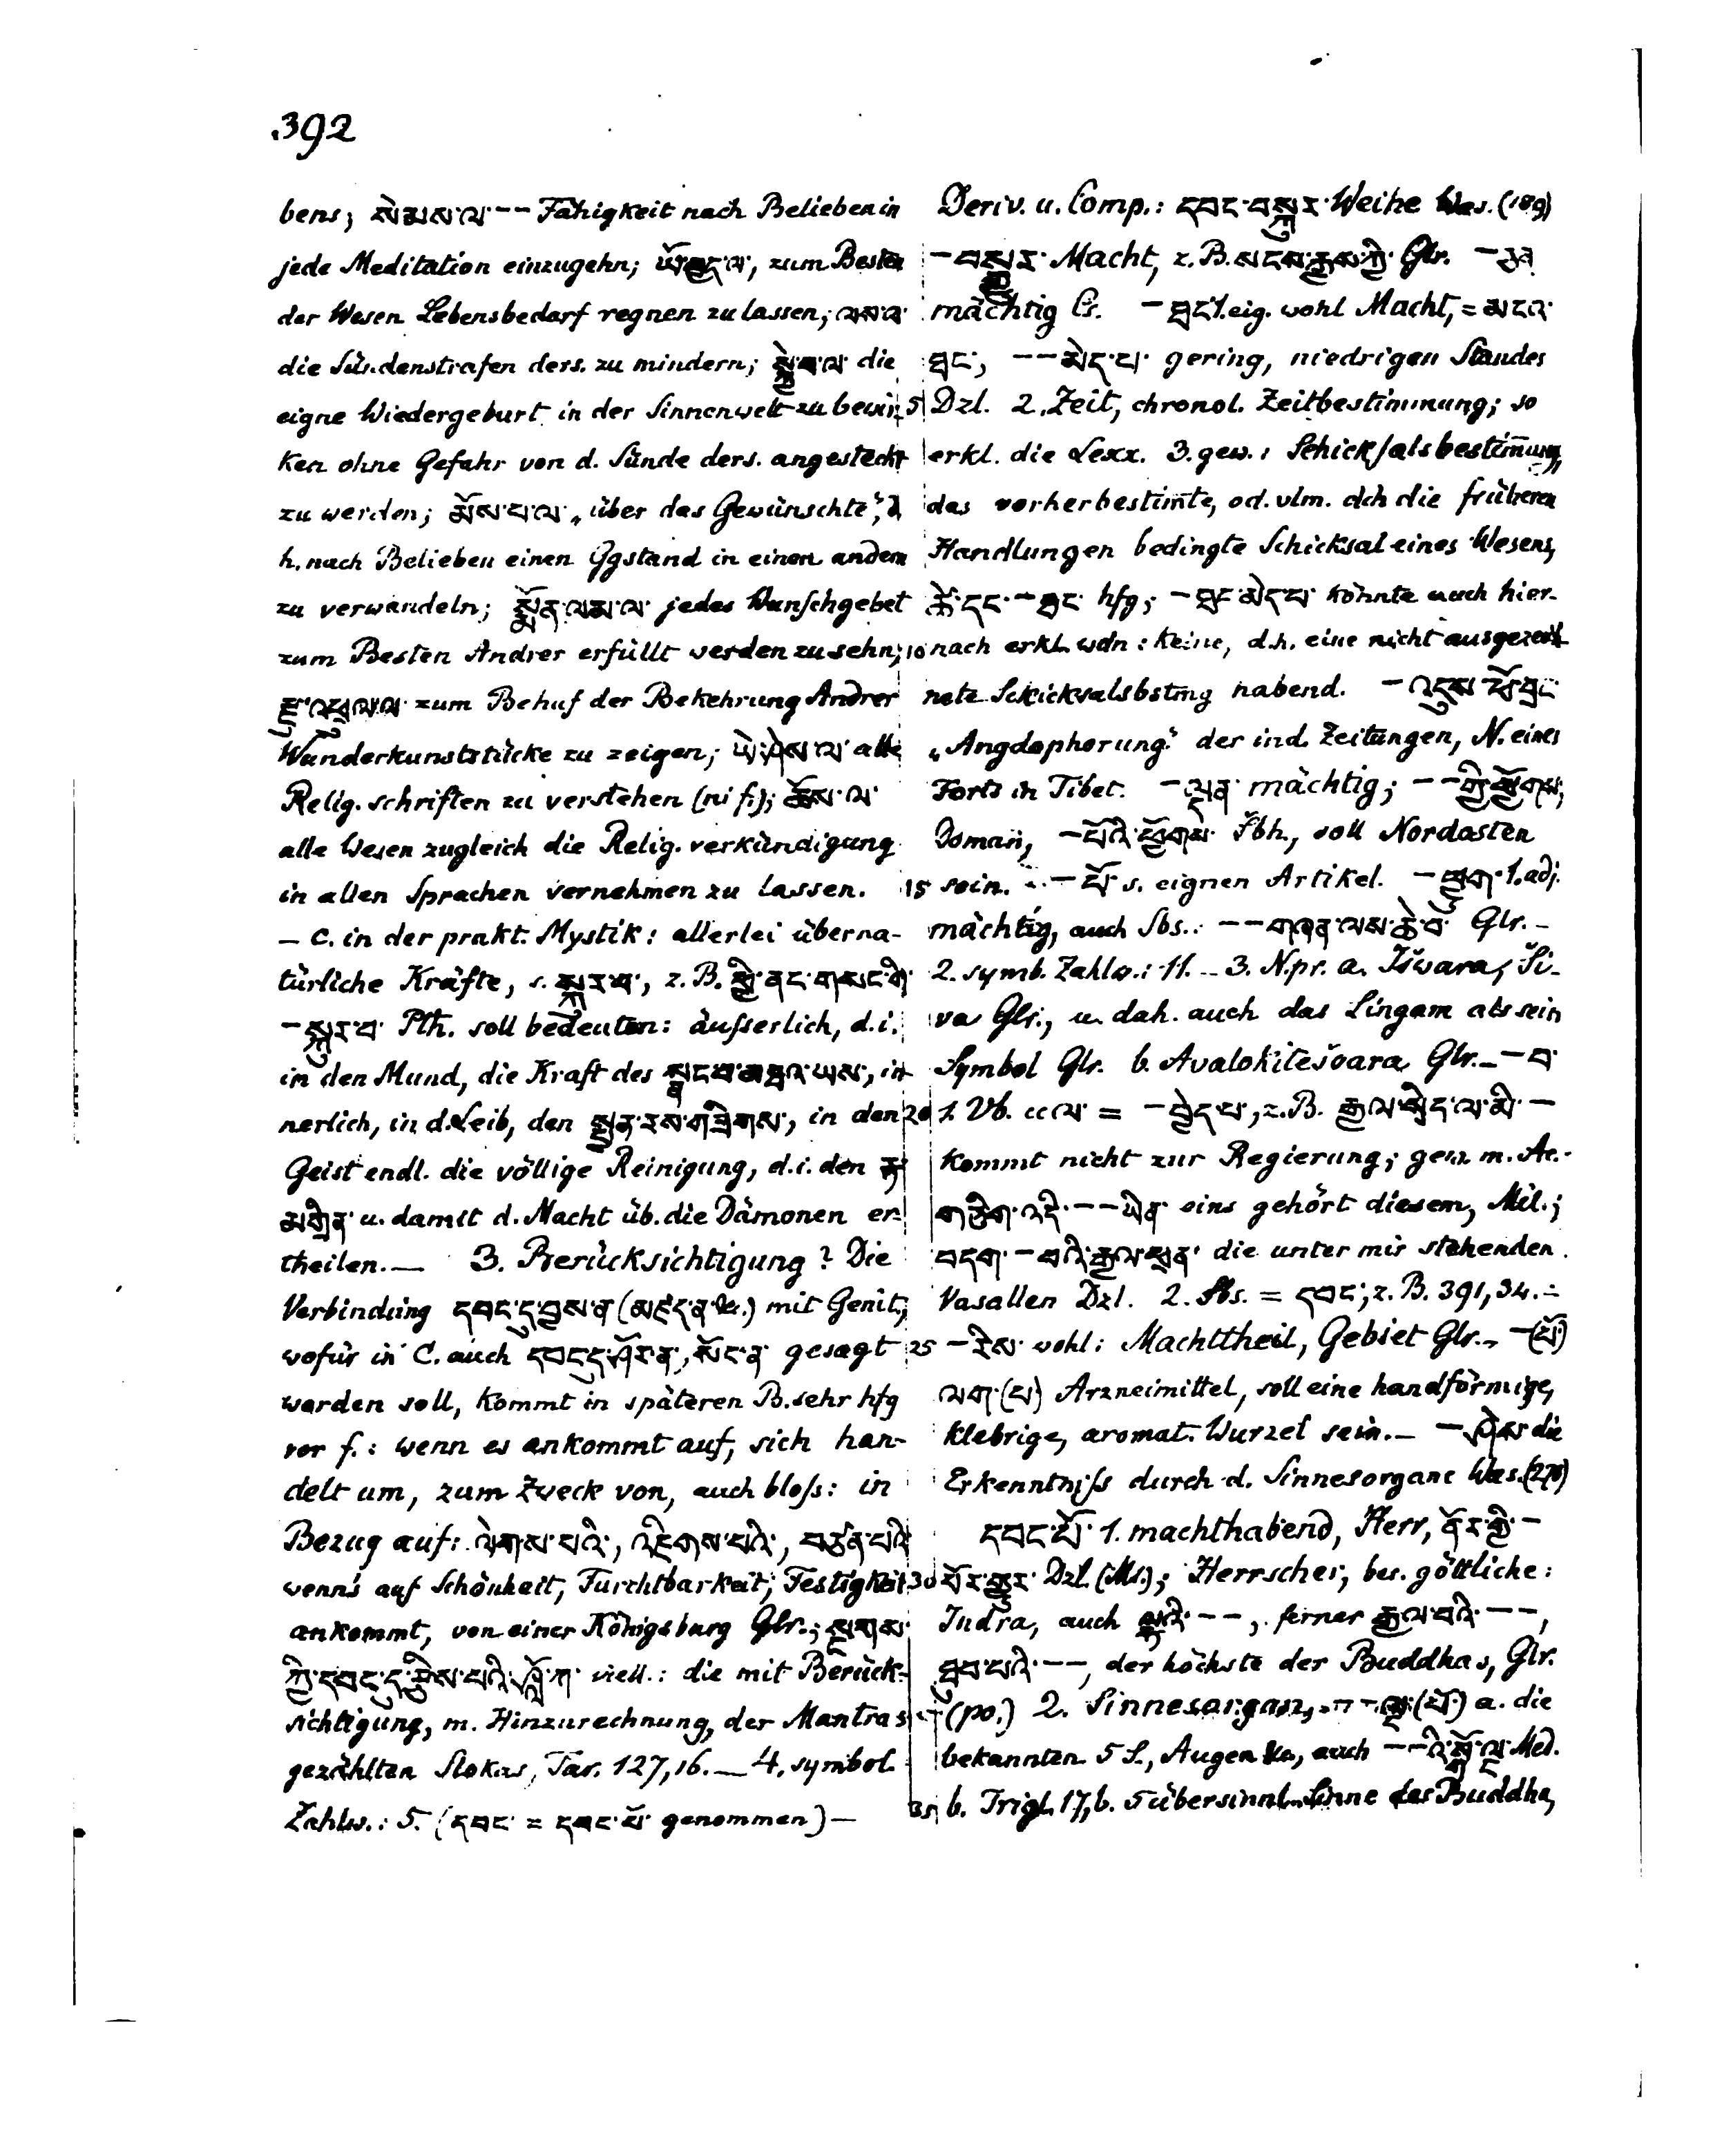 392
bens; སེམས་ལ་ -- Fähigkeit nach Belieben in
jede Meditation einzugehn; ཡོ་བྱད་ལ་, zum Besten
der Wesen Lebensbedarf regnen zu lassen; ལས་ལ་
die Sündenstrafen ders. zu mindern; སྐྱེ་བ་ལ་ die
eigne Wiedergeburt in der Sinnenwelt zu bewir-
ken ohne Gefahr von d. Sünde ders. angesteckt
zu werden; མོས་པ་ལ་ „über das Gewünschte", d.
h. nach Belieben einen Ggstand in einen andern
zu verwandeln; སྨོན་ལམ་ལ་ jedes Wunschgebet
zum Besten Andrer erfüllt werden zu sehn;
རྫུ་འཕྲུལ་ལ་ zum Behuf der Bekehrung Andrer
Wunderkunststücke zu zeigen; ཡེ་ཤེས་ལ་ alle
Relig. schriften zu verstehen (ni f.); ཆོས་ལ་
alle Wesen zugleich die Relig. verkündigung
in allen Sprachen vernehmen zu lassen.
– C. in der prakt. Mystik: allerlei überna-
türliche Kräfte, s. སྐུར་བ་, z. B. ཕྱི་ནང་གསང་གི་
– སྐུར་བ་ Pth. soll bedeuten: äusserlich, d. i.
in den Mund, die Kraft des སྣང་བ་མཐའ་ཡས་, in-
nerlich, in d. Leib, den སྤྱན་རས་གཟིགས་, in den
Geist endl. die völlige Reinigung, d. i. den རྟ་
མགྲིན་ u. damit d. Macht üb. die Dämonen er-
theilen. – 3. Berücksichtigung? Die
Verbindung དབང་དུ་བྱས་ན་ (མཛད་ན་) mit Genit.,
wofür in C. auch དབང་དུ་ཤོར་ན་, སོང་ན་ gesagt
werden soll, kommt in späteren B. sehr hfg
vor f.: wenn es ankommt auf, sich han-
delt um, zum Zweck von, auch bloss: in
Bezug auf: ལེགས་པའི་, འཇིགས་པའི་, བཙན་པའི་
wenn's auf Schönheit, Furchtbarkeit, Festigkeit
ankommt, von einer Königsburg Glr.; སྔགས་
ཀྱི་དབང་དུ་རྩིས་པའི་ཤློ་ཀ་ viell.: die mit Berück-
sichtigung, m. Hinzurechnung, der Mantras
gezählten Slokas, Tar. 127,16. – 4. symbol.
Zahlw.: 5. (དབང་ = དབང་པོ་ genommen) –
Deriv. u. Comp.: དབང་བསྐུར་ Weihe Was. (189)
– བསྒྱུར་ Macht, z. B. སངས་རྒྱས་ཀྱི་ Glr. –
mächtig Cs. – ཐང་ 1. eig. wohl Macht, = མངའ་
ཐང་, -- མེད་པ་ gering, niedrigen Standes
5 Dzl. 2. Zeit, chronol. Zeitbestimmung; so
erkl. die Lexx. 3. gew.: Schicksalsbestimmung,
das vorherbestimte, od. vlm. dch die früheren
Handlungen bedingte Schicksal eines Wesens,
ཚེ་དང་ – ཐང་ hfg; – ཐང་མེད་པ་ könnte auch hier-
10 nach erkl. wdn: keine, d. h. eine nicht ausgezeich
nete Schicksalsbstmg habend. – འདུས་ཕོ་བྲང་
„Angdophorung" der ind. Zeitungen, N. eines
Forts in Tibet. – ལྡན་ mächtig; -- གྱི་ཕྱོགས་,
Doman, – པོའི་ཕྱོགས་ Šbh., soll Nordosten
15 sein. – པོ་ s. eignen Artikel. – ཕྱུག་ 1. adj.
mächtig, auch Sbs.: -- གཞན་ལས་ཆེ་བ་ Glr. –
2. symb. Zahlw.: 11. – 3. N. pr. a. Išwara, Ši-
va Glr., u. dah. auch das Lingam als sein
Symbol Glr. b. Avalokitešvara Glr. – – བ་
20 1. Vb. c. ལ་ = – བྱེད་པ་, z. B. རྒྱལ་སྲིད་ལ་མི་ –
kommt nicht zur Regierung; gew. m. Ac.
གཅིག་འདི་ -- ཡིན་ eins gehört diesem, Mil.;
བདག་ – བའི་རྒྱལ་ཕྲན་ die unter mir stehenden
Vasallen Dzl. 2. Sbs. = དབང་, z. B. 391,34. –
25 – རིས་ wohl: Machttheil, Gebiet Glr. – – (པོ་)
ལག་ (པ) Arzneimittel, soll eine handförmige,
klebrige, aromat. Wurzel sein. – – ཤེས་ die
Erkenntniss durch d. Sinnesorgane Was. (278)
དབང་པོ་ 1. machthabend, Herr, ནོར་གྱི་ –
30 པོར་གྱུར་ Dzl. (Ms.); Herrscher, bes. göttliche:
Indra, auch ལྷའི་ --, ferner རྒྱལ་བའི་ --,
ཐུབ་པའི་ --, der höchste der Buddhas, Glr.
(po.) 2. Sinnesorgan, – ལྔ་ (པོ་) a. die
bekannten 5 S., Augen &c, auch -- འི་སྒོ་ལྔ་ Med.
35 b. Trigl. 17, b. 5 übersinnl. Sinne des Buddha,